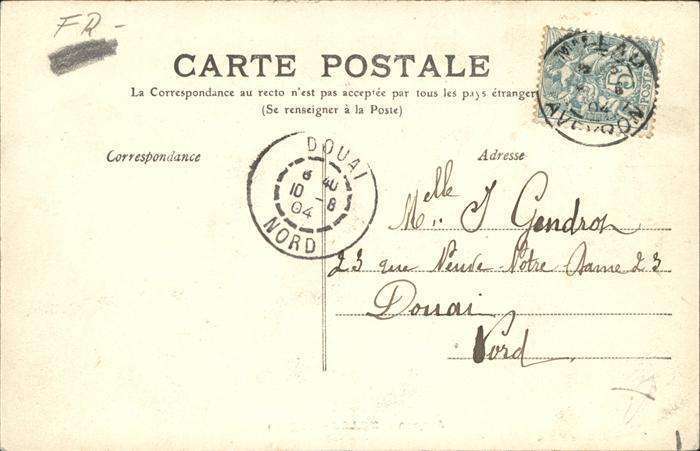 FR-
CARTE POSTALE
La Correspondance au recto n'est pas acceptée par tous les pays étrangers
(Se renseigner à la Poste)
Correspondance
Adresse
DOUAI
6 40
10 - 8
04
NORD
MILLAU
04
AVEYRON
POSTES
Melle J Gendron
23 rue Neuve Notre Dame 23
Douai
Nord